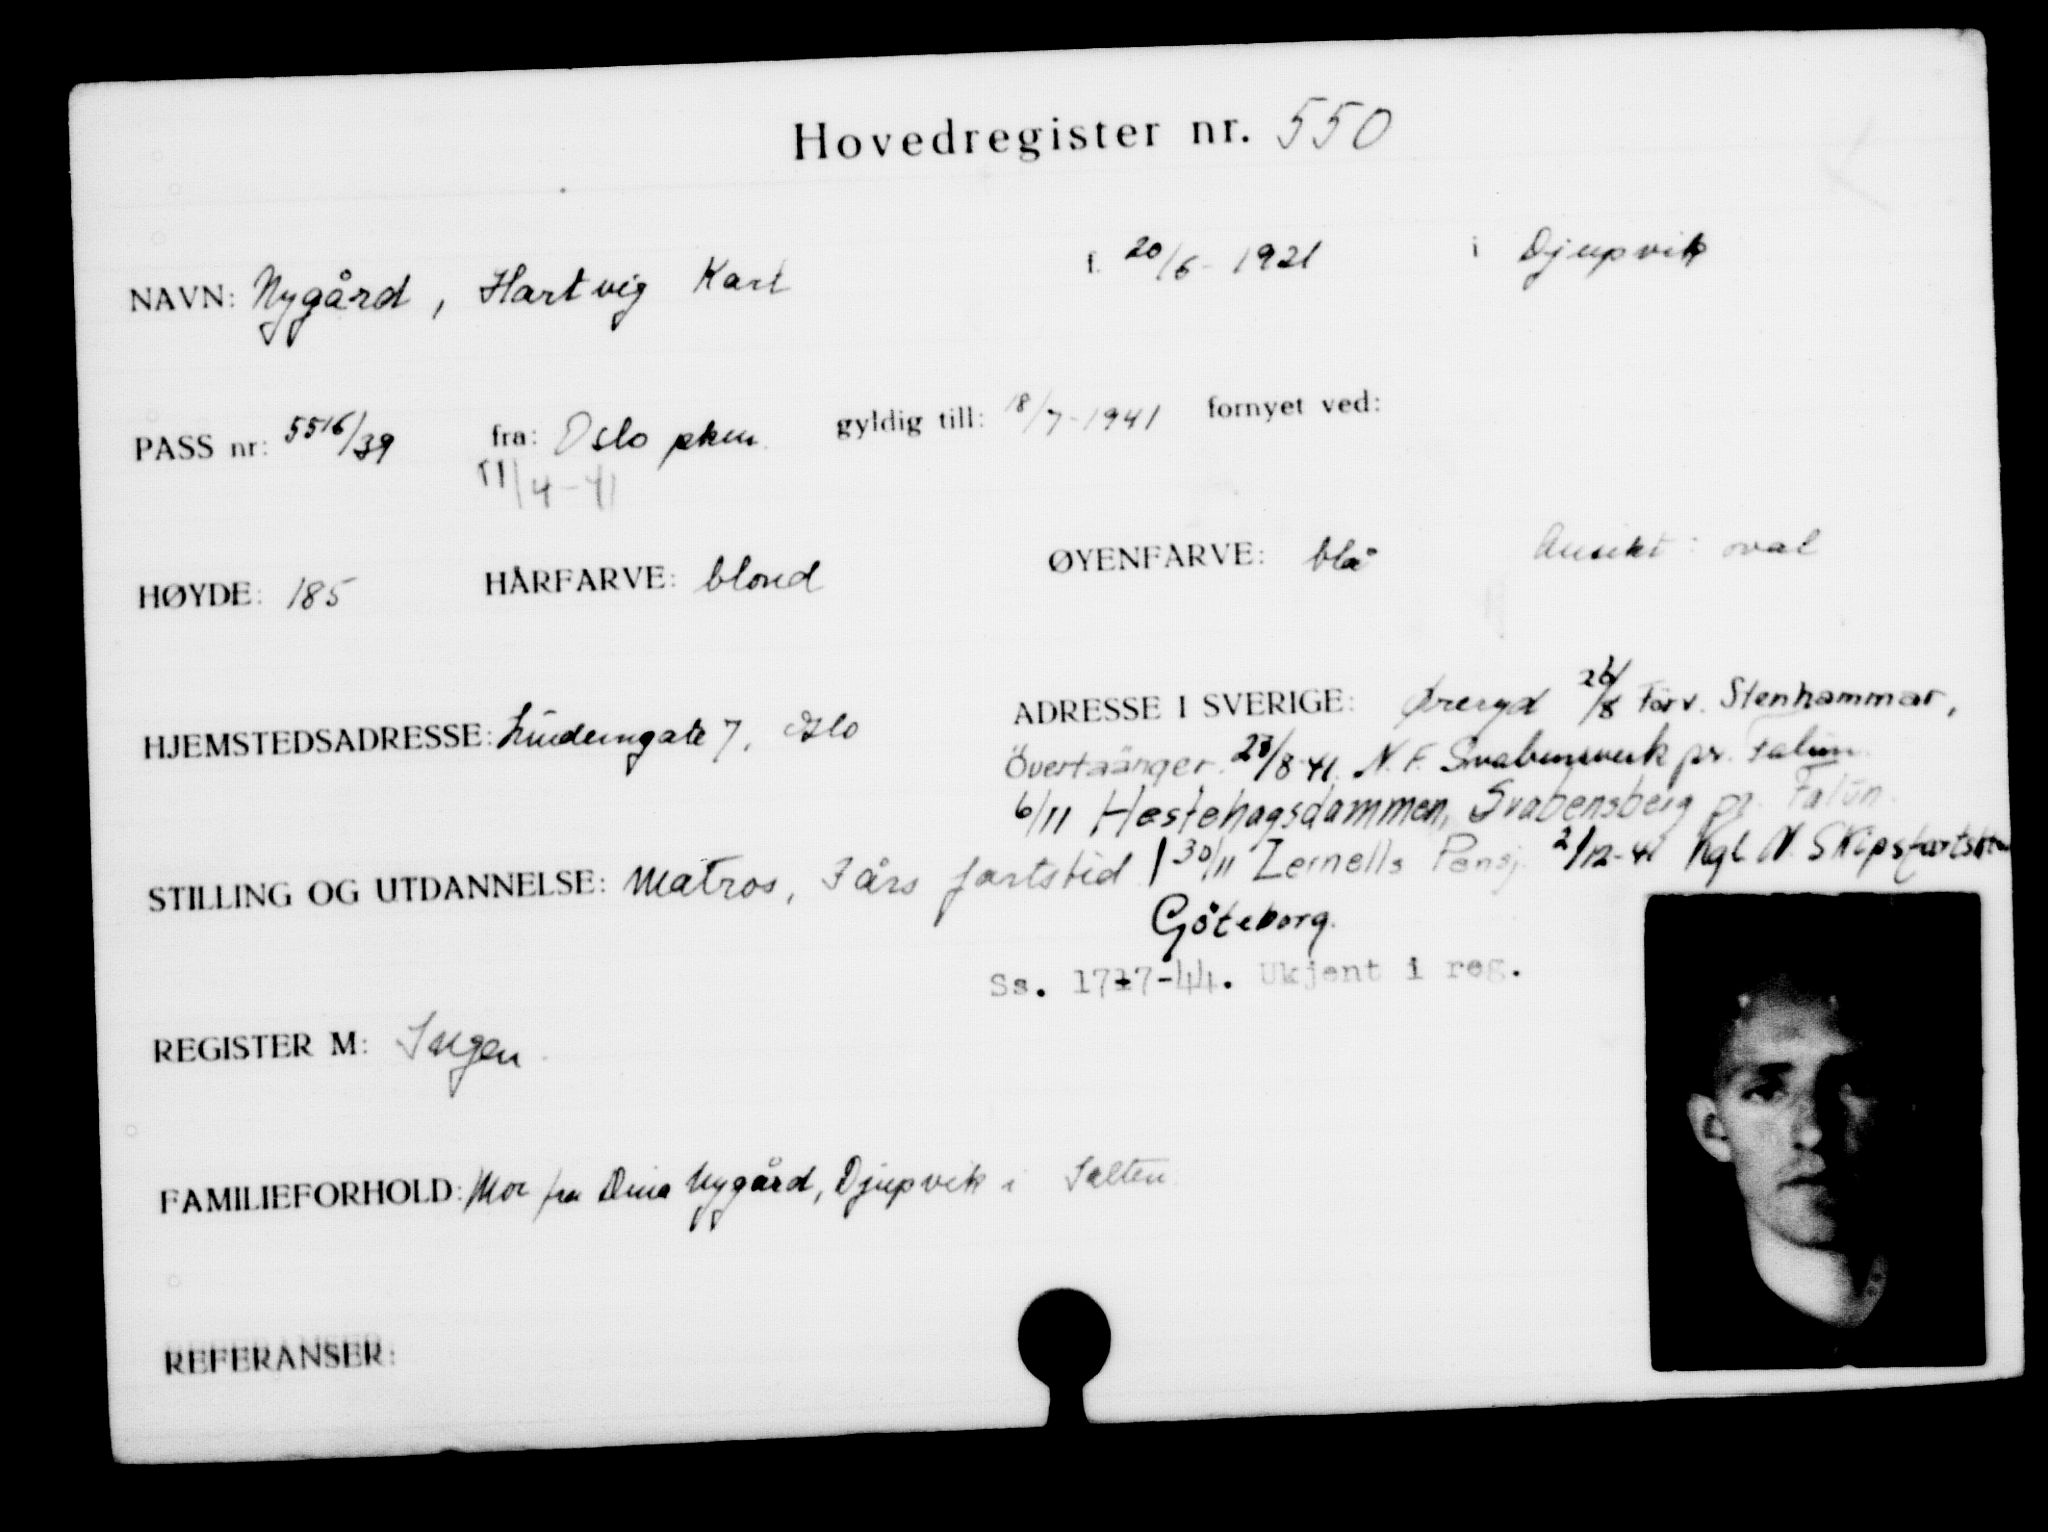 Hovedregister nr. 550
NAVN: Nygård, Hartvig Karl f. 20/6-1921 i Djupvik
PASS nr: 5516/39 fra: Oslo pkm. gyldig till: 18/7-1941 fornyet ved:
11/4-41
HØYDE: 185 HÅRFARVE: blond ØYENFARVE: blå Ansikt: oval
HJEMSTEDSADRESSE: 7, Oslo ADRESSE I SVERIGE: Øreryd 26/8 Förv. Stenhammar,
Övertäänger. 28/8 41. N.F. Svabensverk pr. Falun.
6/11 Hestehagsdammen, Svabensberg pr. Falun.
STILLING OG UTDANNELSE: Matros, 3 års fartstid / 30/11 Zernells Pensj. 2/12-41 Kgl N. Skipsfartsktr
Göteborg.
Ss. 17-7-44. Ukjent i reg.
REGISTER M: Ingen.
FAMILIEFORHOLD: Mor fru Dina Nygård, Djupvik i Salten.
REFERANSER: